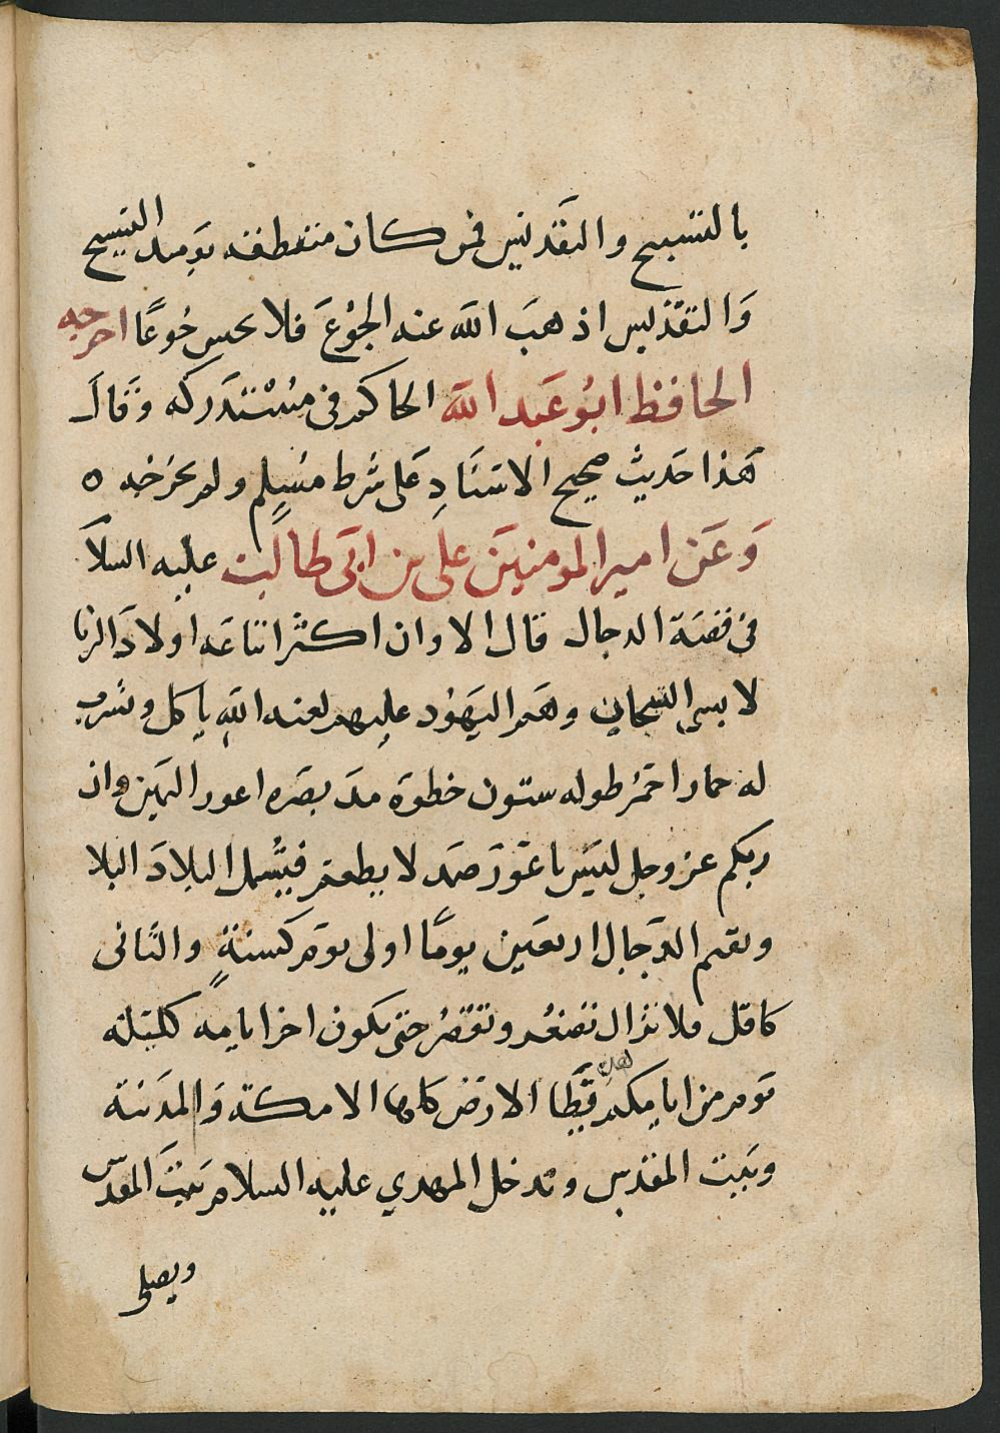 بالتسبيح والتقديس فمن كان منطقه يوميد التسبيح
والتقديس اذهب الله عنه الجوع فلا يحس جوعًا اخرجه
الحافظ ابو عبد الله الحاكم في مستدركه وقال
هذا حديث صحيح الاسناد على شرط مسلم ولم يخرجه ه
وعن امير المومنين علي بن ابي طالب عليه السلا
في قصة الدجال قال الا وان اكثر اتباعه اولاد الزنا
لابسي السيجان وهم اليهود عليهم لعنه الله ياكل ويشرب
له حمار احمر طوله ستون خطوة مد بصره اعور اليمين وان
ربكم عز وجل ليس باعور صمد لا يطعم فيشمل البلاد البلا
ويقيم الدجال اربعين يومًا اولى يوم كسنةٍ والثاني
كاقل فلا تزال تصغر وتقصر حتى يكون اخر ايامه كليلة
يوم من ايامكم هذه يطا الارض كلها الا مكة والمدينة
وبيت المقدس ويدخل المهدي عليه السلام بيت المقدس
ويصلي